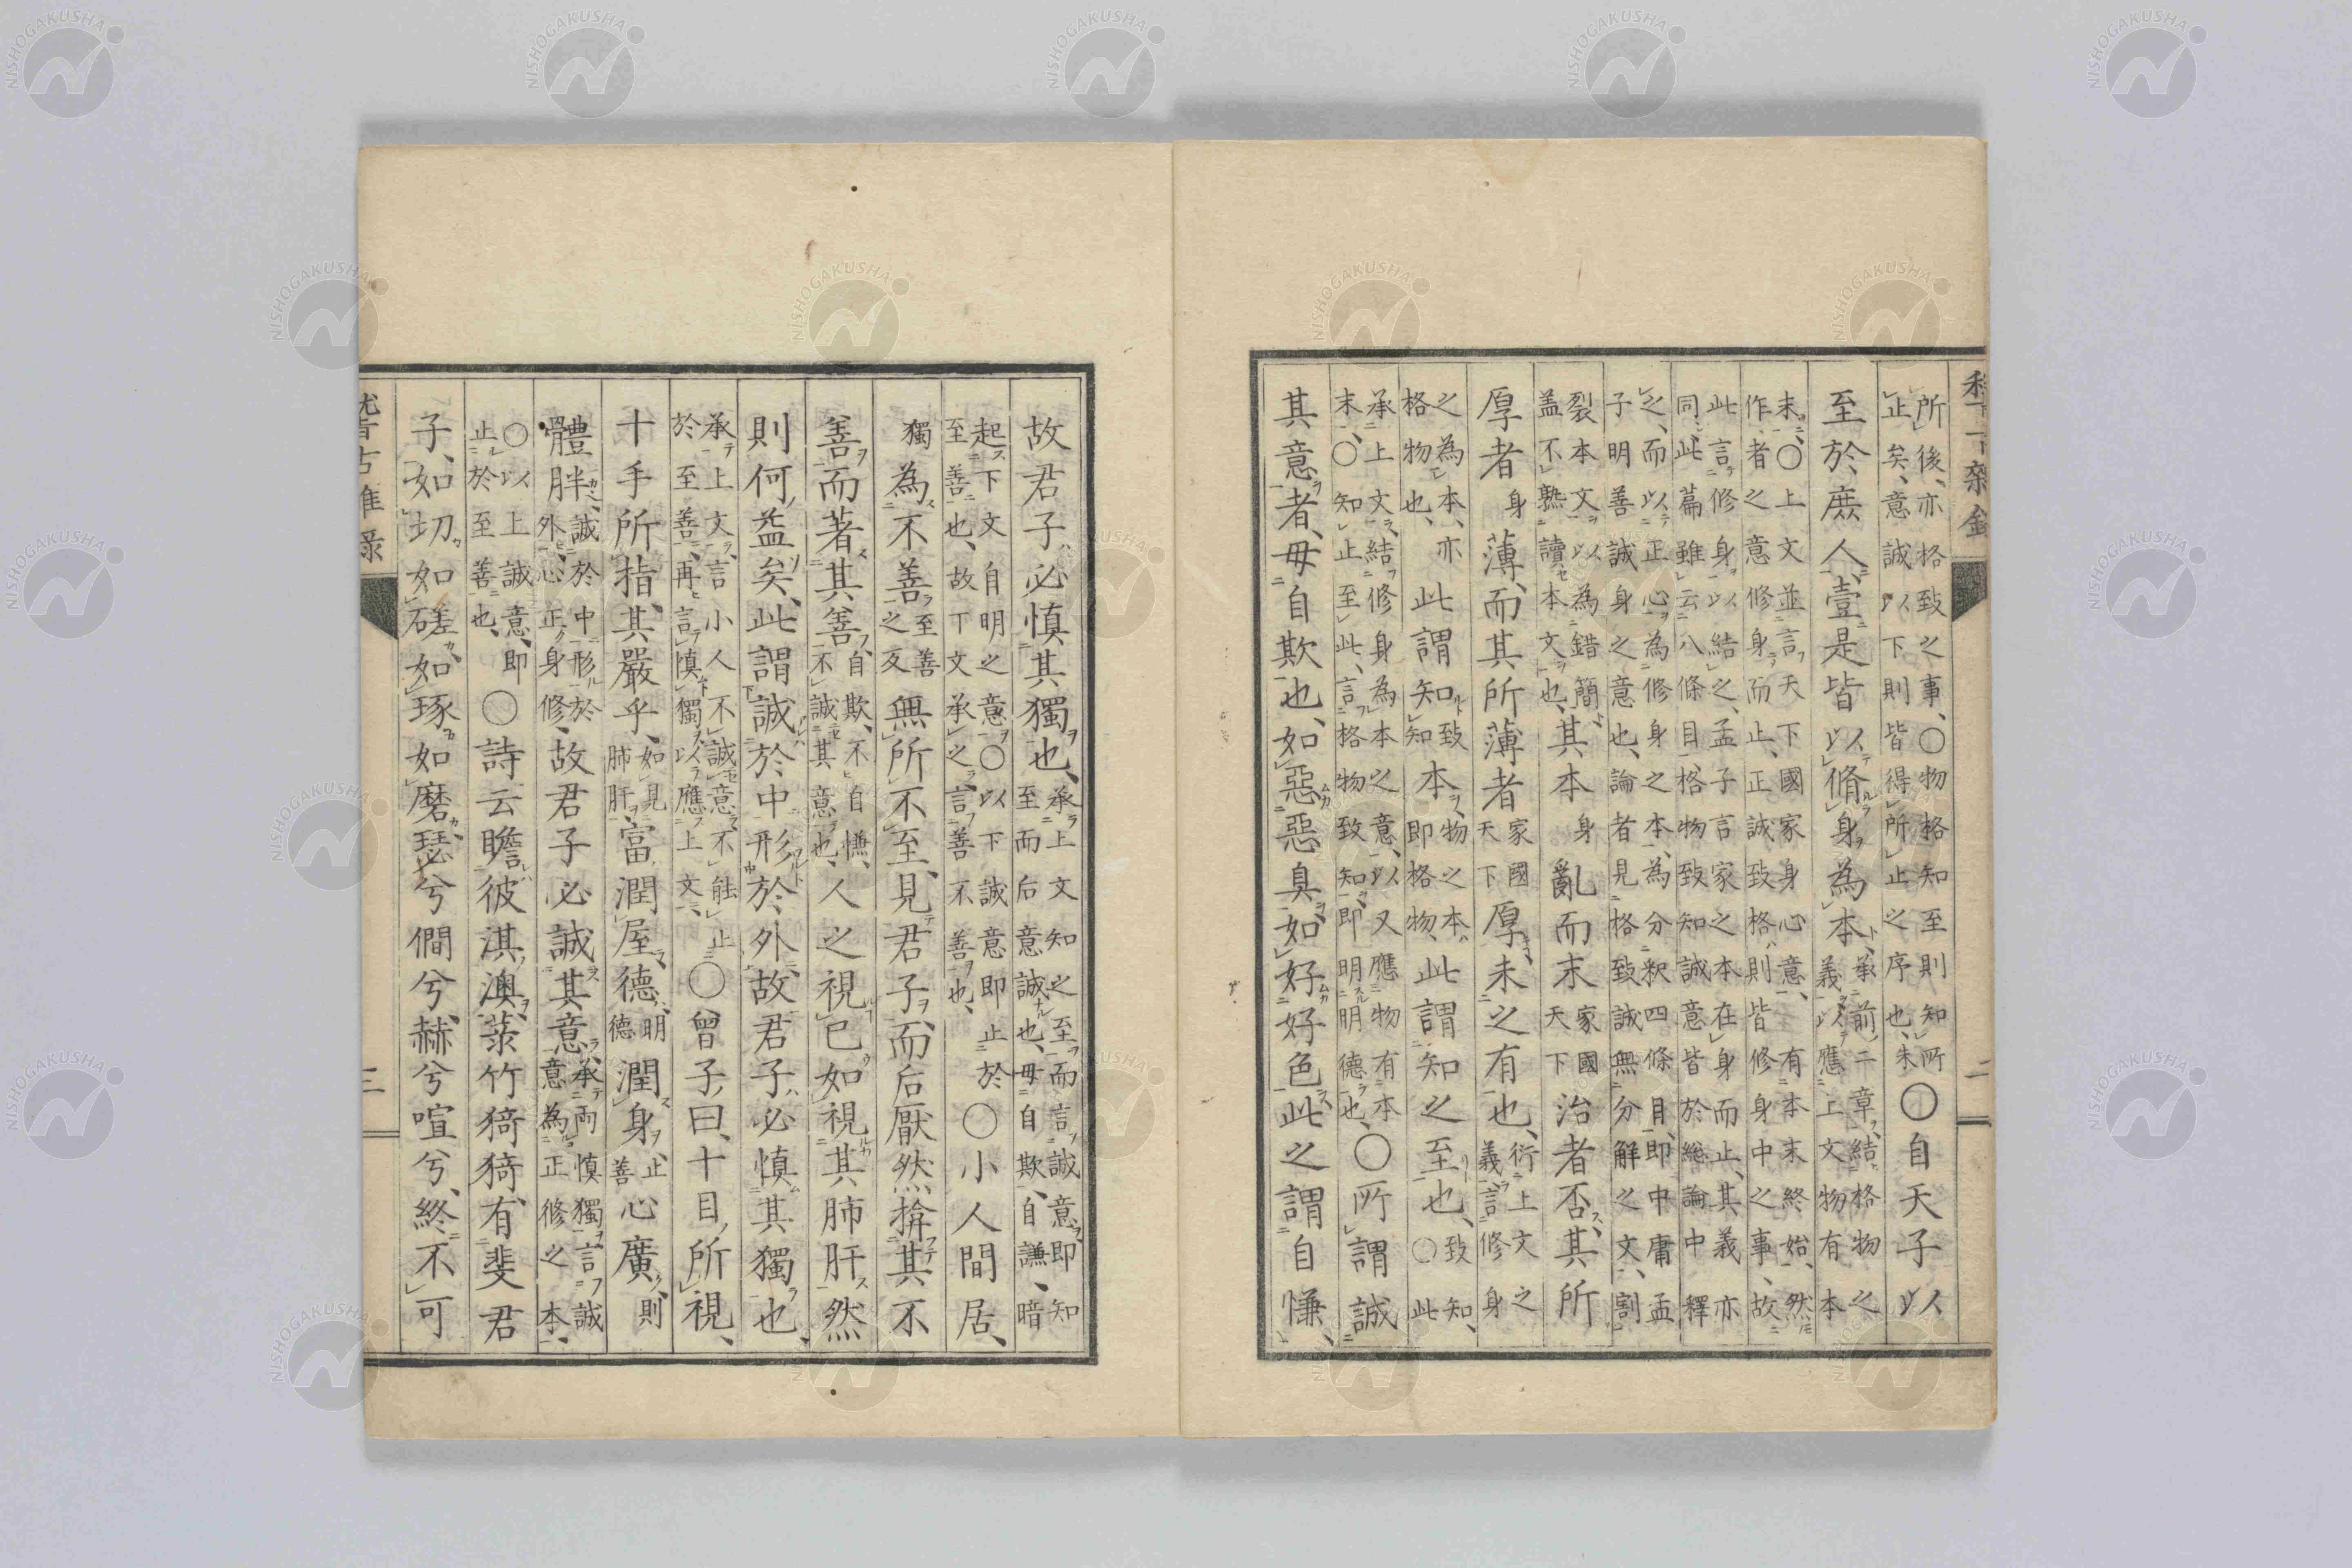 二
所後、亦格致之事、〇物格知至則知所
止矣、意誠以下則皆得所止之序也、朱
〇自天子以
至於庶人壹是皆以脩身為本、
承前二章、結格物之
義以應上文物有本
末、〇上文並言天下國家身心意、有本末終始、然
作者之意修身而止、正誠致格則皆修身中之事、故
此言修身以結之、孟子言家之本在身而止、其義亦
同此篇雖云八條目格物致知誠意皆於総論中釋
之、而以正心為修身之本、為分釈四條目、即中庸孟
子明善誠身之意也、論者見格致誠無分解之文、割
裂本文以為錯簡
盖不熟讀本文也、
其本身亂而末
家國
天下
治者否、其所
厚者身薄、而其所薄者
家國
天下
厚、未之有也、
衍上文之
義言修身
之為本、亦
格物也、
此謂知
致
知
本、
物之本
即格物、
此謂知之至也、
致知、
〇此
承上文結修身為本之意、以又應物有本
末、〇知止至此、言格物致知、即明明德也、
〇所謂誠
其意者、毋自欺也、如惡惡臭如好好色此之謂自慊、
故君子必慎其獨也、
承上文知之至而言誠意即知
至而后意誠也、毋自欺、自謙、暗
起下文自明之意〇以下誠意即止於
至善也、故丅文承之言善不善也、
〇小人間居、
獨為不善
至善
之反
無所不至、見君子而后厭然揜其不
善而著其善、
自欺、不自慊、
不誠其意也、
人之視已如視其肺肝然
則何益矣、此謂誠於中形於外、故君子必慎其獨也、
承上文言小人不誠意不能止
於至善、再言慎獨以應上文、
〇曾子曰、十目所視、
十手所指、其嚴乎、
如見
肺肝、
富潤屋、德
明
德
潤身、
止
善
心廣、則
體胖、
誠於中形於
外、心正身修、
故君子必誠其意
承兩慎獨言誠
意為正修之本、
〇以上誠意、即
止於至善也、
〇詩云瞻彼淇澳菉竹猗猗、有斐君
子、如切如磋、如琢如磨、瑟兮僩兮、赫兮喧兮、終不可
三